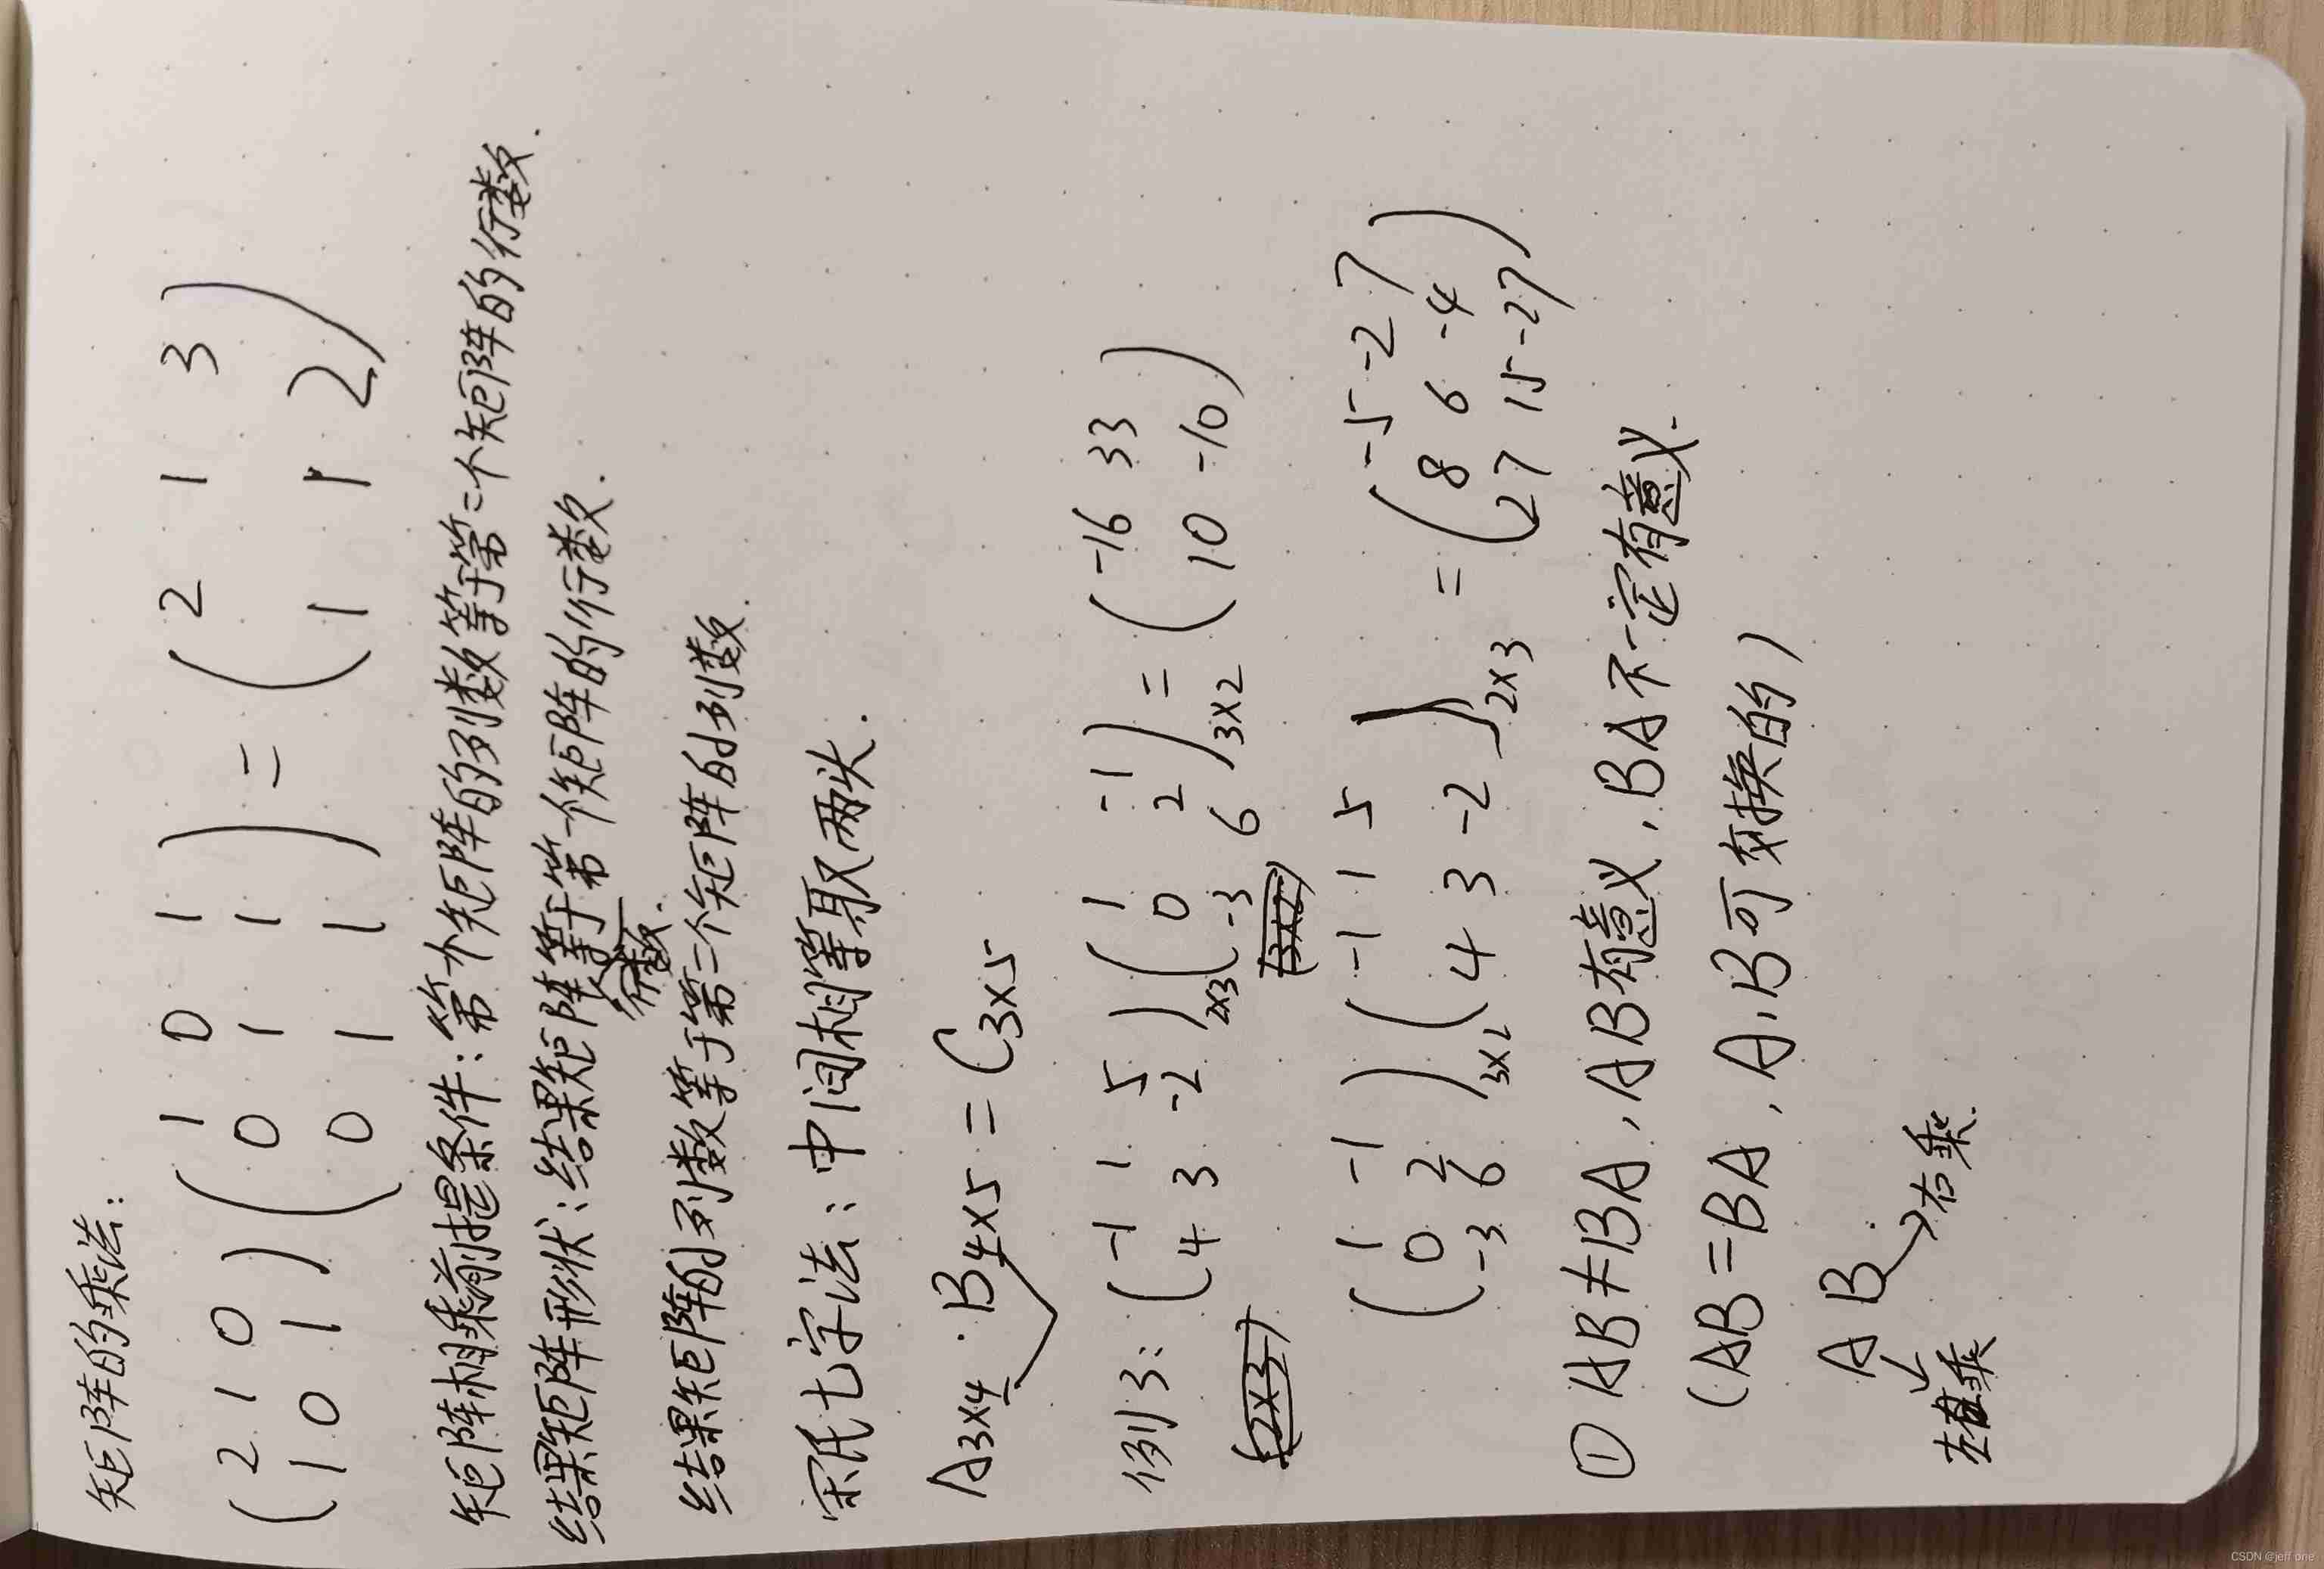 矩阵的乘法:
(2 1 0
1 0 1) (1 0 1
0 1 1
0 1 1) = (2 1 3
1 1 2)
矩阵相乘前提条件:第一个矩阵的列数等于第二个矩阵的行数.
结果矩阵形状:结果矩阵行数等于第一个矩阵的行数.
结果矩阵的列数等于第二个矩阵的列数.
宋氏七字法:中间相等取两头.
A3×4 · B4×5 = C3×5
例3: (-1 1 5
4 3 -2)2×3 (1 -1
0 2
-3 6)3×2 = (-16 33
10 -10)
(2×3)
(3×2)
(1 -1
0 2
-3 6)3×2 (-1 1 5
4 3 -2)2×3 = (-5 -2 7
8 6 -4
27 15 -27)
① AB≠BA, AB有意义, BA不一定有意义.
(AB=BA, A,B可交换的)
A B
左乘
右乘.
CSDN @jeff one